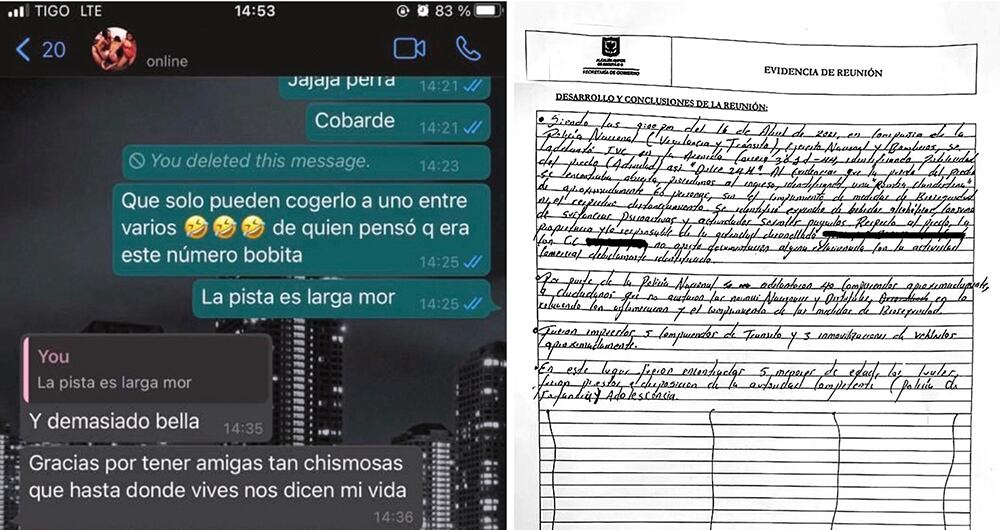 TIGO LTE 14:53 83 %
20
online
Jajaja perra
14:21
Cobarde
14:21
You deleted this message.
14:23
Que solo pueden cogerlo a uno entre
varios 🤣🤣🤣 de quien pensó q era
este número bobita
14:25
La pista es larga mor
14:25
You
La pista es larga mor
Y demasiado bella
14:35
Gracias por tener amigas tan chismosas
que hasta donde vives nos dicen mi vida
14:36
ALCALDÍA MAYOR
DE BOGOTÁ D.C.
SECRETARÍA DE GOBIERNO
EVIDENCIA DE REUNIÓN
DESARROLLO Y CONCLUSIONES DE LA REUNIÓN:
Siendo las del 16 de Abril de 2021, en compañía de la
Policía Nacional (Vigilancia y Tránsito), Ejército Nacional y Bomberos, se
adelantó IVC en la identificado
del predio "Dulce Al evidenciar que la puerta del predio
se encontraba abierta, procedimos al ingreso, identificando una "Rumba clandestina"
de aproximadamente 60 personas, sin el cumplimiento de medidas de Bioseguridad
ni el respectivo distanciamiento. Se identificó expendio de bebidas alcohólicas, consumo
de sustancias Psicoactivas y actividades sexuales Respecto al predio la
propietaria y/o responsable de la actividad desarrollada
con CC no aportó documentación alguna relacionada con la actividad
comercial debidamente identificada.
Por parte de la Policía Nacional se adelantaron 40 comparendos aproximadamente,
a ciudadanos que no acataron las normas Nacionales y Distritales, en lo
relacionado con aglomeración y el cumplimiento de las medidas de Bioseguridad.
Fueron impuestos 5 comparendos de Tránsito y 3 inmovilizaciones de vehículos
aproximadamente.
En este lugar fueron encontrados 5 menores de edad, los cuales,
fueron puestos a disposición de la autoridad competente (Policía de
Infancia y Adolescencia.